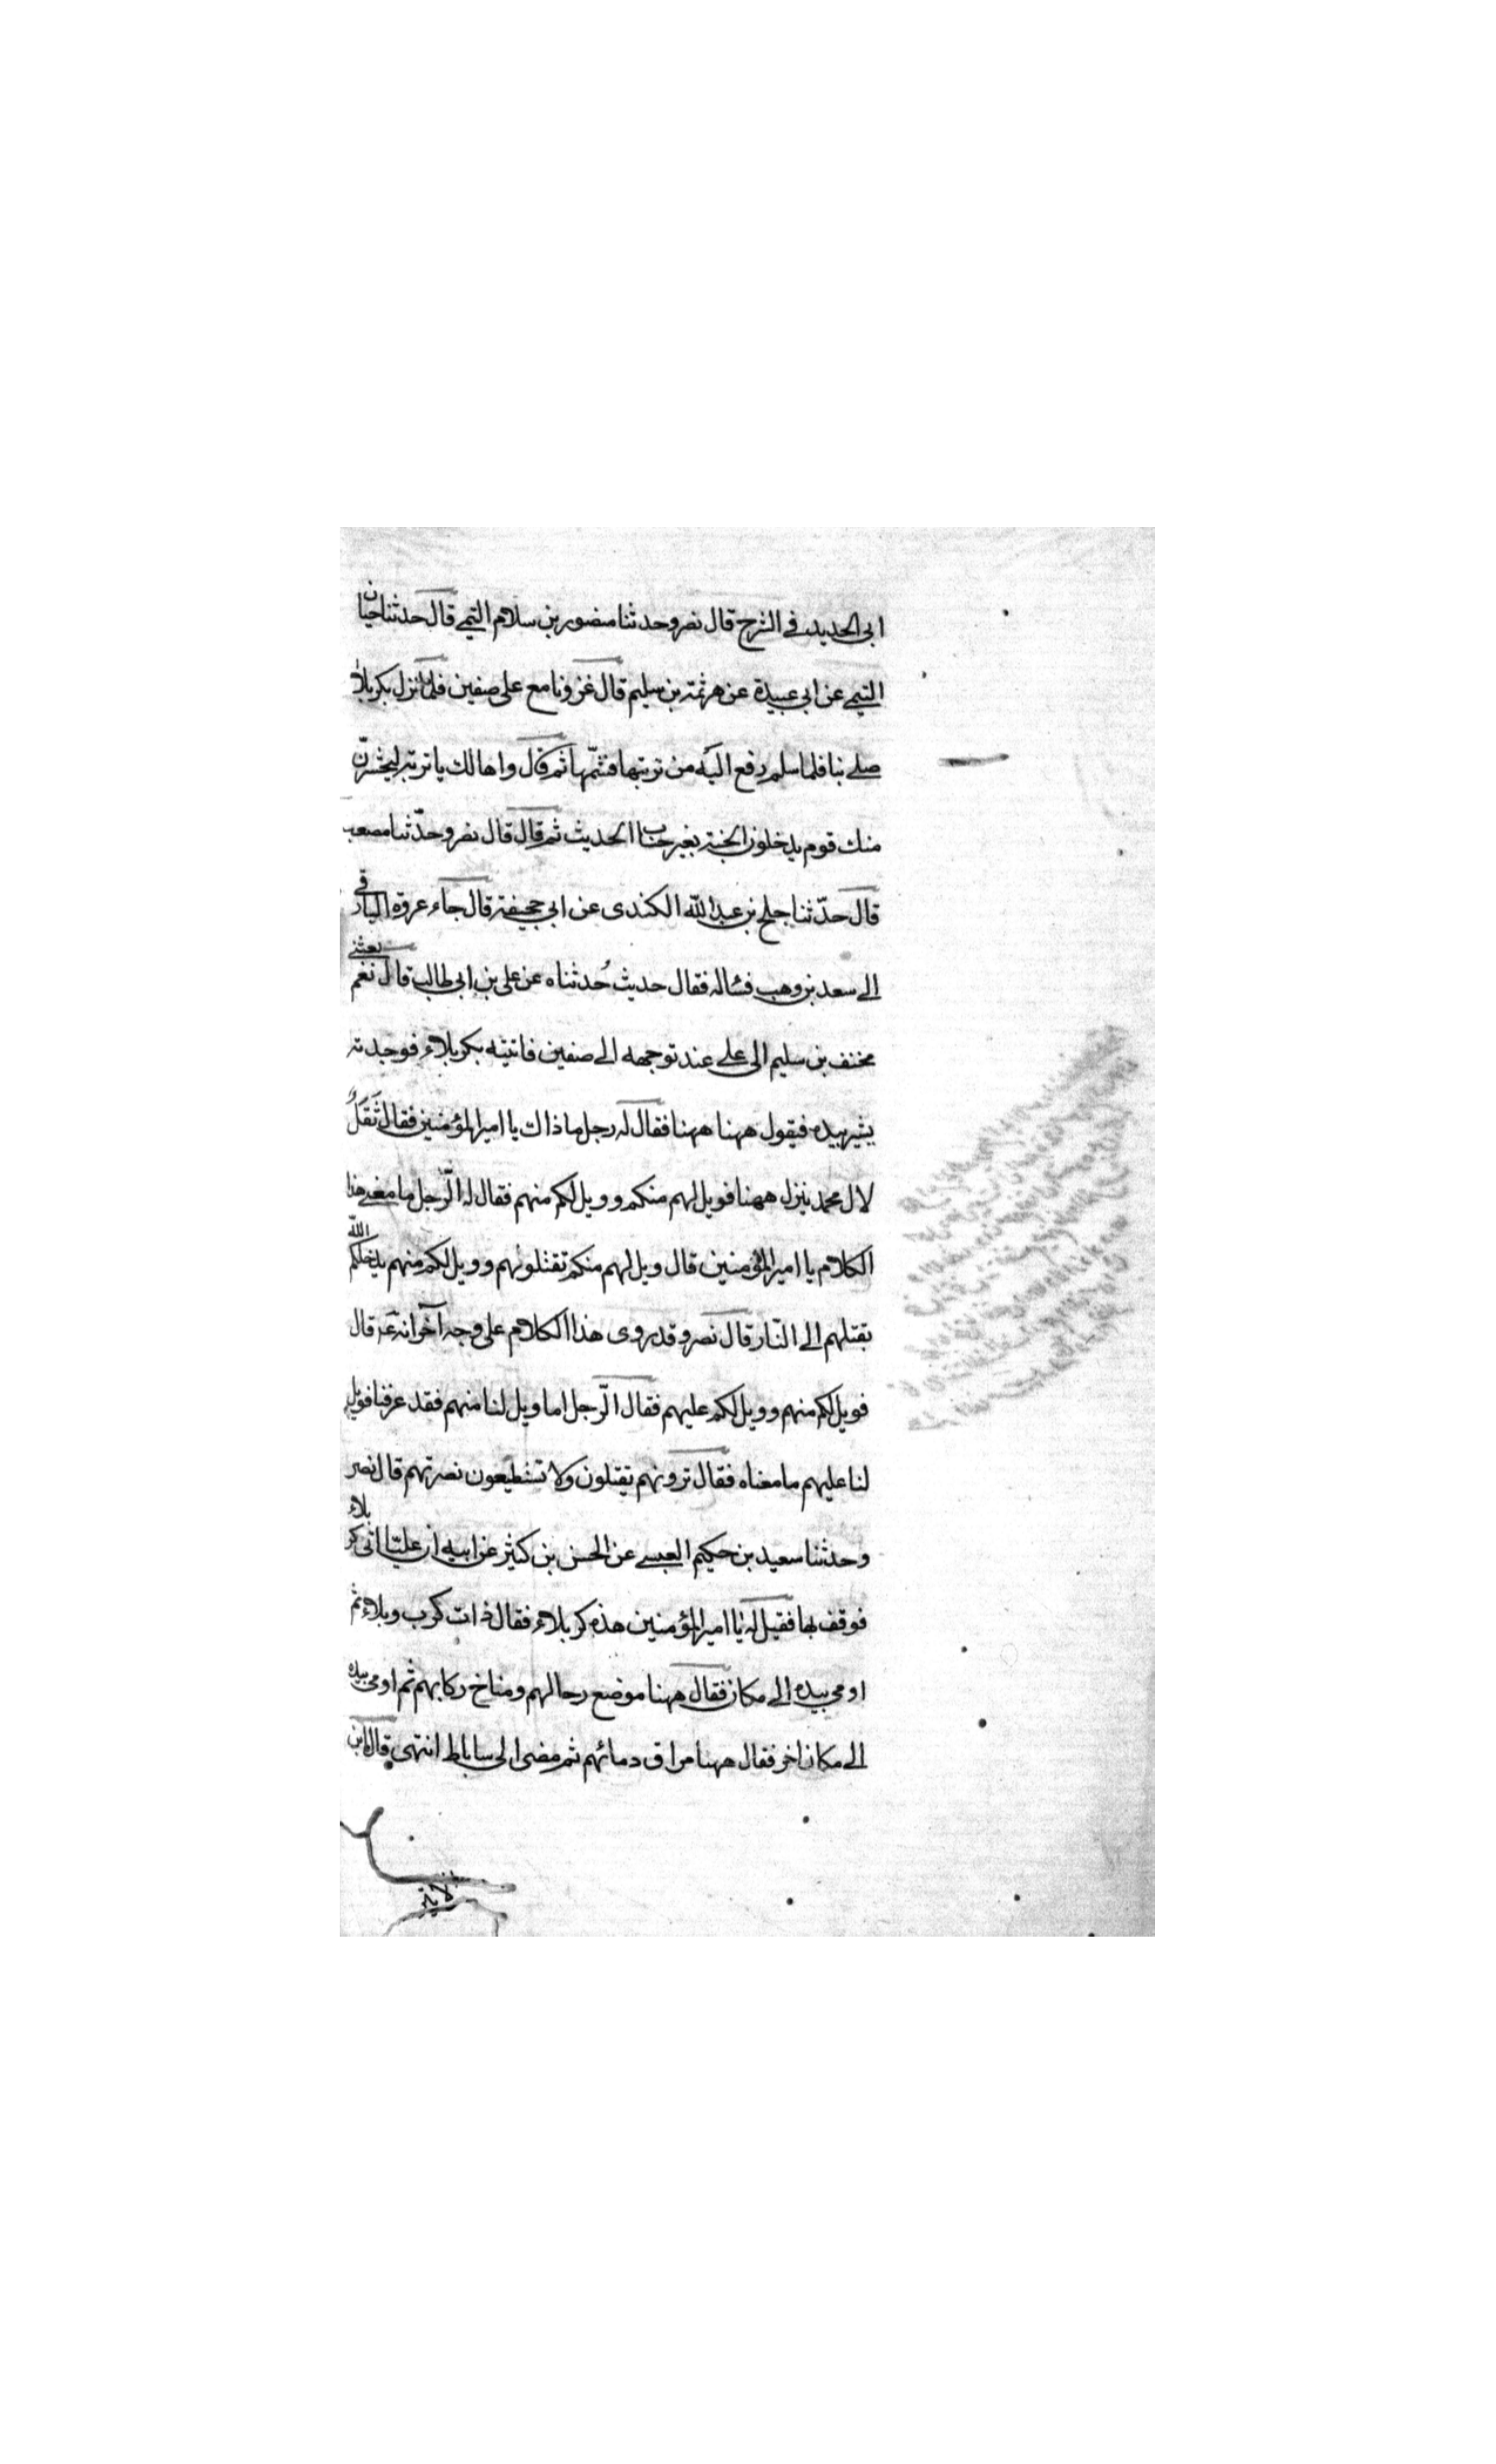 ابى الحديد في الشرح قال نصر وحدثنا منصور بن سلام التيمي قال حدثنا حيان
التيمي عن ابى عبيدة عن هرثمة بن سليم قال غزونا مع على صفين فلما نزل بكربلا
صلى بنا فلما سلم رفع اليه من تربتها فشمّها ثم قال واها لك يا تربة ليحشرنّ
منك قوم يدخلون الجنة بغير حساب الحديث ثم قال قال نصر وحدّثنا مصعب
قال حدّثنا اجلح بن عبد الله الكندى عن ابى جحيفة قال جاء عروة البارقي
الى سعد بن وهب فسئاله فقال حديث حُدثناه عن على بن ابى طالب قال نعم بعثني
مخنف بن سليم الى على عند توجهه الى صفين فاتيته بكربلاء فوجدته
يشير بيده فيقول ههنا ههنا فقال له رجل ما ذاك يا امير المؤمنين فقال ثَقَلٌ
لال محمد ينزل ههنا فويل لهم منكم وويل لكم منهم فقال له الرّجل ما معنى هذا
الكلام يا امير المؤمنين قال ويل لهم منكم تقتلونهم وويل لكم منهم يدخلكم الله
بقتلهم الى النّار قال نصر وقد روى هذا الكلام على وجه آخر انه عـ قال
فويل لكم منهم وويل لكم عليهم فقال الرّجل اما ويل لنا منهم فقد عرفنا فويل
لنا عليهم ما معناه فقال ترونهم يقتلون ولا تستطيعون نصرتهم قال نصر
وحدثنا سعيد بن حكيم العبسي عن الحسن بن كثير عن ابيه ان عليّا اتى كربلاء
فوقف بها فقيل له يا امير المؤمنين هذه كربلاء فقال ذات كرب وبلاء ثم
اومى بيده الى مكان فقال ههنا موضع رحالهم ومناخ ركابهم ثم اومى بيده
الى مكان اخر فقال ههنا مراق دمائهم ثم مضى الى ساباط انتهى قال ابن